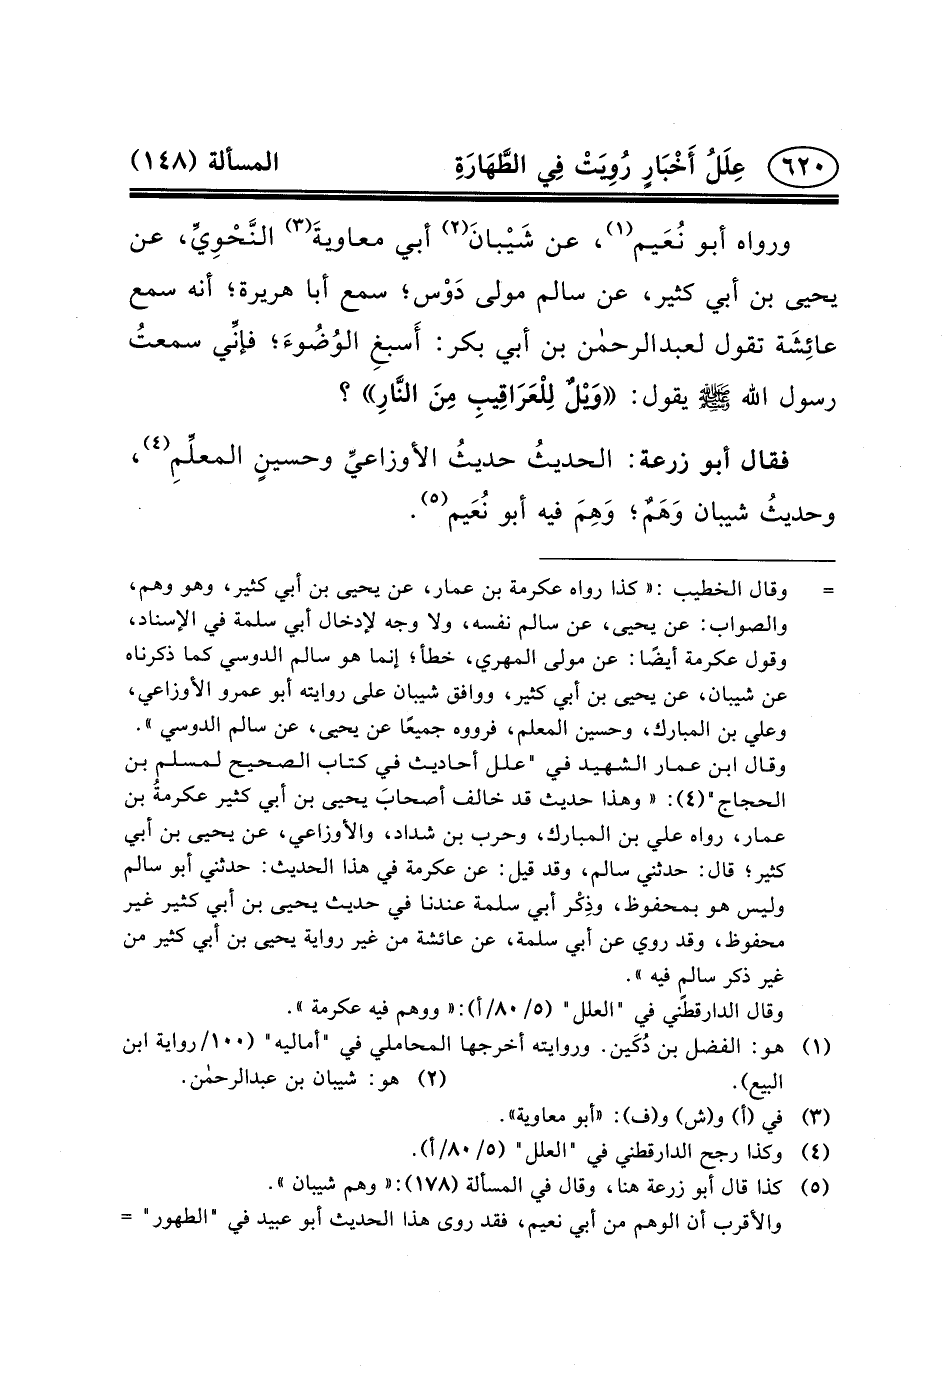 ٦٢٠ عِلَلُ أَخْبَارٍ رُوِيَتْ فِي الطَّهَارَةِ المسألة (١٤٨)
ورواه أبو نُعَيم(١)، عن شَيْبانَ(٢) أبي معاويةَ(٣) النَّحْوِيِّ، عن
يحيى بن أبي كثير، عن سالم مولى دَوْس؛ سمع أبا هريرة؛ أنه سمع
عائِشَة تقول لعبدالرحمٰن بن أبي بكر: أَسبِغِ الوُضُوءَ؛ فإنِّي سمعتُ
رسول الله ﷺ يقول: «وَيْلٌ لِلْعَرَاقِيبِ مِنَ النَّارِ» ؟
فقال أبو زرعة: الحديثُ حديثُ الأوزاعيِّ وحسينٍ المعلِّمِ(٤)،
وحديثُ شيبان وَهَمٌ؛ وَهِمَ فيه أبو نُعَيم(٥).
= وقال الخطيب :« كذا رواه عكرمة بن عمار، عن يحيى بن أبي كثير، وهو وهم،
والصواب: عن يحيى، عن سالم نفسه، ولا وجه لإدخال أبي سلمة في الإسناد،
وقول عكرمة أيضًا: عن مولى المهري، خطأ؛ إنما هو سالم الدوسي كما ذكرناه
عن شيبان، عن يحيى بن أبي كثير، ووافق شيبان على روايته أبو عمرو الأوزاعي،
وعلي بن المبارك، وحسين المعلم، فرووه جميعًا عن يحيى، عن سالم الدوسي ».
وقال ابن عمار الشهيد في "علل أحاديث في كتاب الصحيح لمسلم بن
الحجاج"(٤): « وهذا حديث قد خالف أصحابَ يحيى بن أبي كثير عكرمةُ بن
عمار، رواه علي بن المبارك، وحرب بن شداد، والأوزاعي، عن يحيى بن أبي
كثير؛ قال: حدثني سالم، وقد قيل: عن عكرمة في هذا الحديث: حدثني أبو سالم
وليس هو بمحفوظ، وذِكْر أبي سلمة عندنا في حديث يحيى بن أبي كثير غير
محفوظ، وقد روي عن أبي سلمة، عن عائشة من غير رواية يحيى بن أبي كثير من
غير ذكر سالم فيه ».
وقال الدارقطني في "العلل" (٥/ ٨٠/أ):« ووهم فيه عكرمة ».
(١) هو: الفضل بن دُكَين. وروايته أخرجها المحاملي في "أماليه" (١٠٠/ رواية ابن
البيع). (٢) هو: شيبان بن عبدالرحمٰن.
(٣) في (أ) و(ش) و(ف): «أبو معاوية».
(٤) وكذا رجح الدارقطني في "العلل" (٥/ ٨٠/أ).
(٥) كذا قال أبو زرعة هنا، وقال في المسألة (١٧٨):« وهم شيبان ».
والأقرب أن الوهم من أبي نعيم، فقد روى هذا الحديث أبو عبيد في "الطهور" =